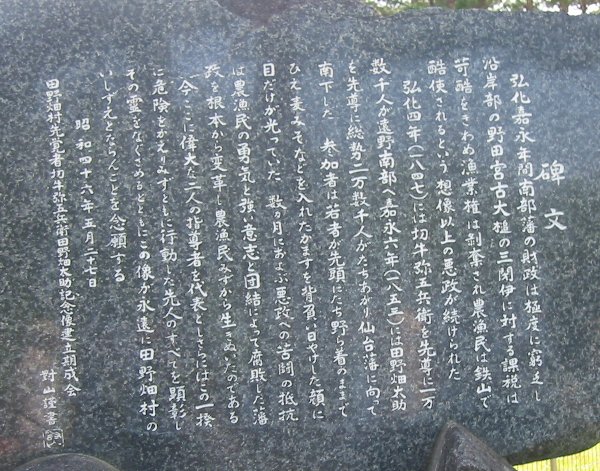 碑文
弘化嘉永年間南部藩の財政は極度に窮乏し
沿岸部の野田宮古大槌の三閉伊に対する課税は
苛酷をきわめ漁業権は剥奪され農漁民は鉄山で
酷使されるという想像以上の悪政が続けられた
弘化四年(一八四七)には切牛弥五兵衛を先導に一万
数千人が遠野南部へ嘉永六年(一八五三)には田野畑太助
を先導に総勢二万数千人がたちあがり仙台藩に向って
南下した 参加者は若者が先頭にたち野ら着のままで
ひえ麦みそなどを入れたかますを背負い日やけした顔に
目だけが光っていた 数ヵ月におよぶ悪政への苦闘の抵抗
は農漁民の勇気と強い意志と団結によって腐敗した藩
政を根本から変革し農漁民みずから生きぬいたのである
今ここに偉大な二人の指導者を代表としさらにはこの一揆
に危険をかえりみずともに行動した先人のすべてを顕彰し
その霊をなぐさめるとともにこの像が永遠に田野畑村の
いしずえとならんことを念願する
昭和四十六年五月二十七日
田野畑村先覚者切牛弥五兵衛田野畑太助記念像建立期成会
對山謹書